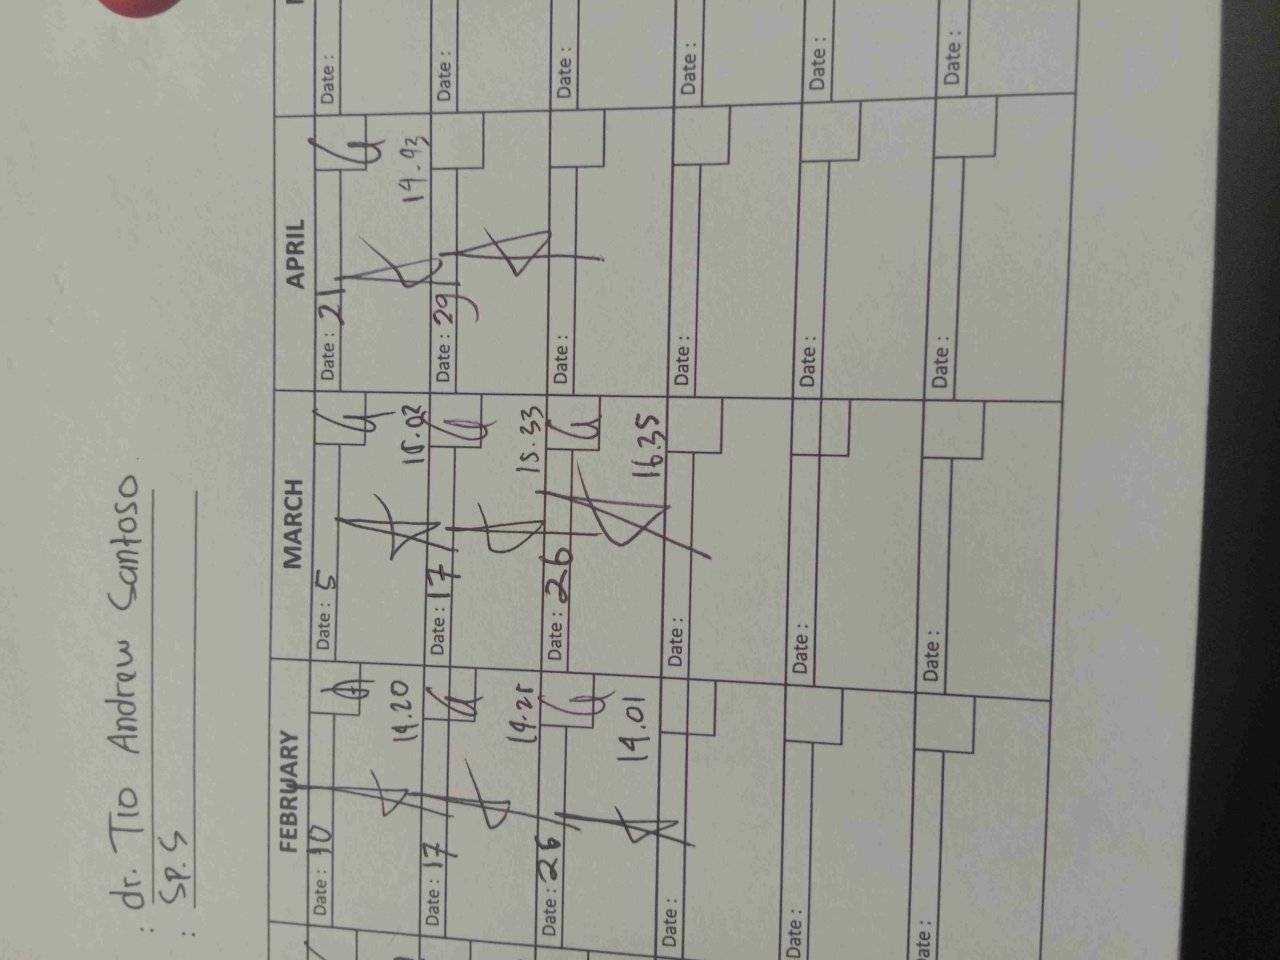 : dr. Tio Andrew Santoso
: Sp.S
FEBRUARY MARCH APRIL
Date : 10 Date : 5 Date : 21 Date :
14.20 15.02 14.43
Date : 17 Date : 17 Date : 29 Date :
14.25 15.33
Date : 26 Date : 26 Date : Date :
14.01 16.35
Date : Date : Date : Date :
Date : Date : Date : Date :
Date : Date : Date : Date :